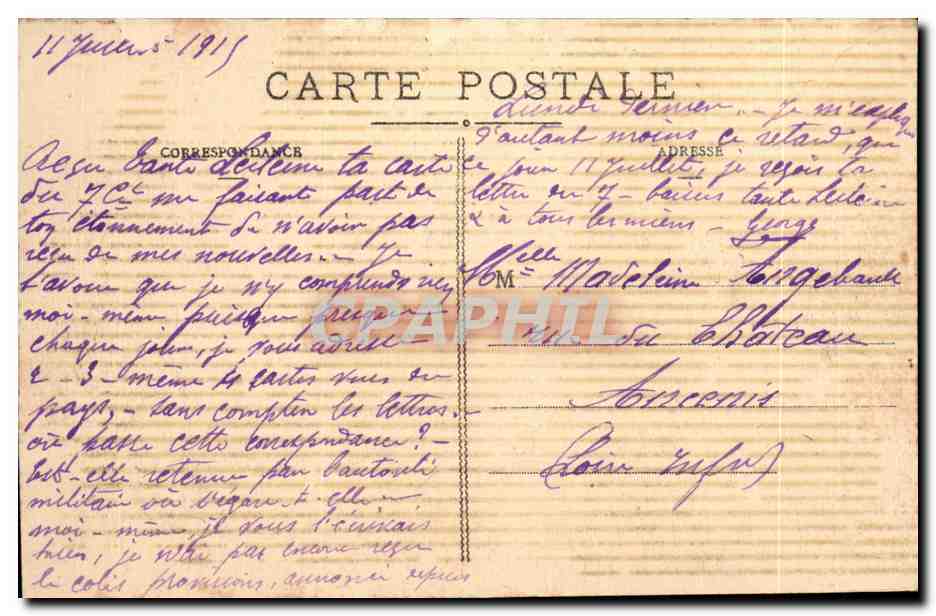 11 Juillet 1915
CARTE POSTALE
CORRESPONDANCE
Reçu tante ta carte
du 7 Ct me faisant part de
ton étonnement de n'avoir pas
reçu de mes nouvelles. - Je
t'avoue que je n'y comprends rien
moi-même puisque presque
chaque jour, je vous adresse
2 - 3 - même 4 cartes vues du
pays, - sans compter les lettres. -
où passe cette correspondance ? -
Est-elle retenue par l'autorité
militaire où s'égare-t-elle -
moi-même, je vous l'écrivais
hier, je n'ai pas encore reçu
le colis provisions, annoncé depuis
Lundi dernier. - Je m'explique
d'autant moins ce retard, que
ADRESSE
ce jour 11 Juillet, je reçois ta
lettre du 7 - baisers tante
& à tous derniers - George
M elle Madeleine Angebault
Rue du Château
Ancenis
(Loire Infre)
CPAPHIL